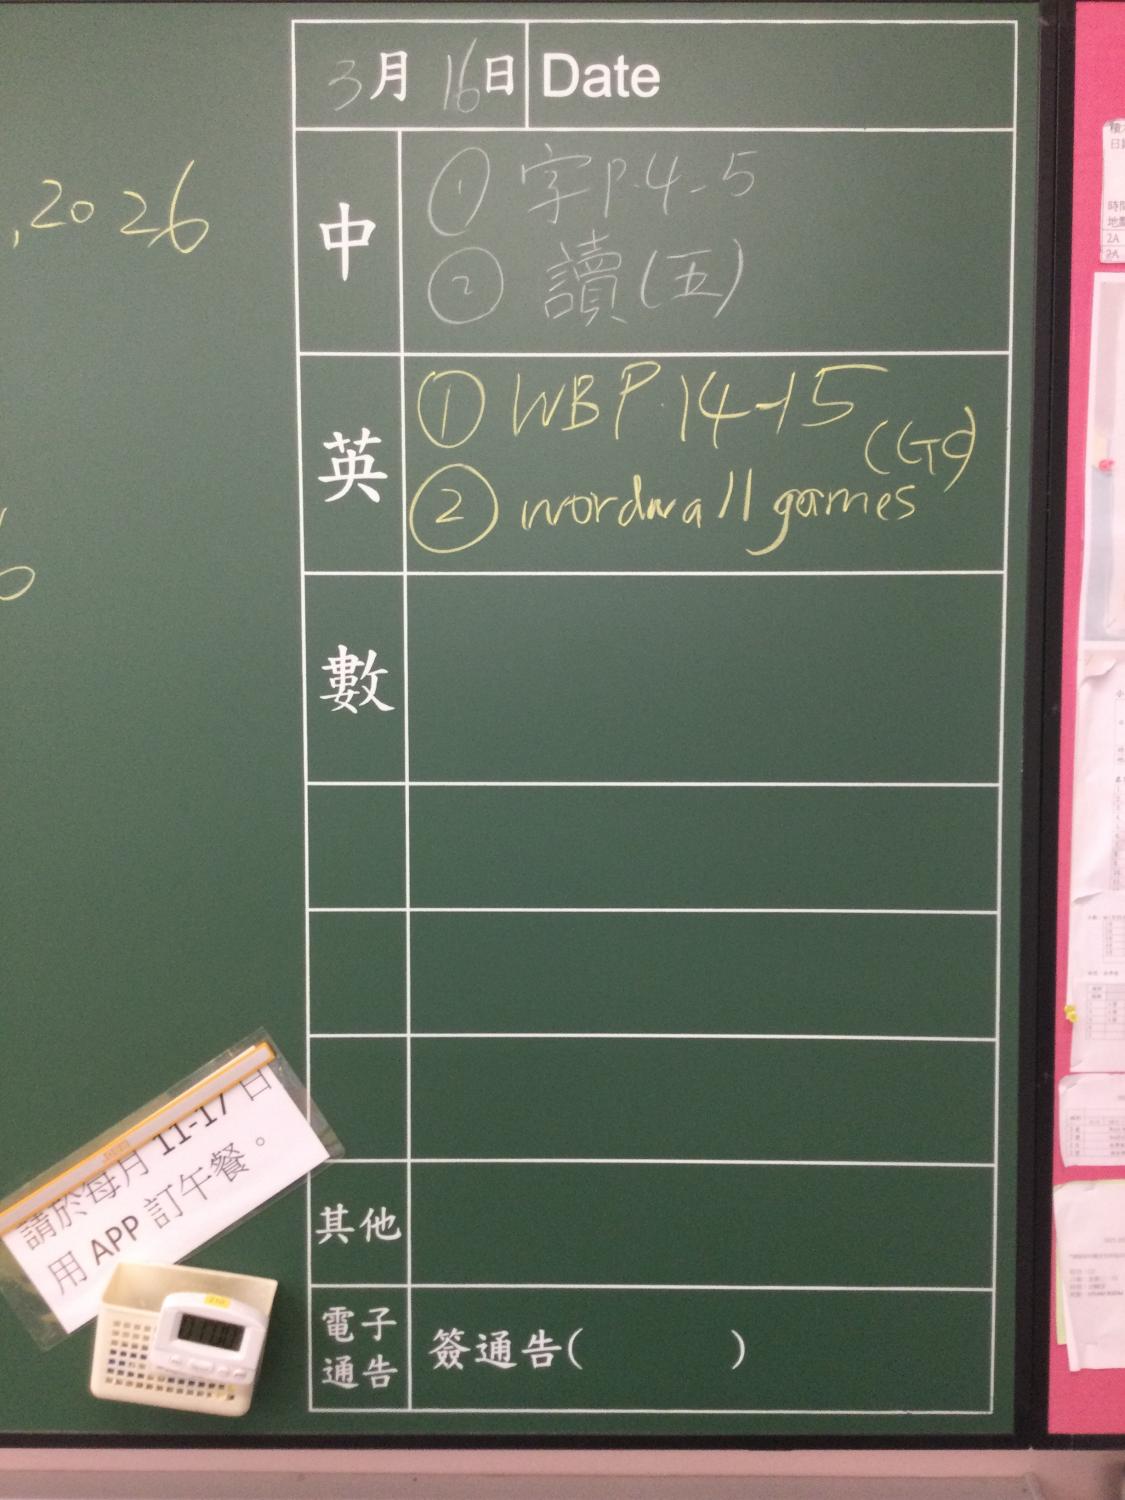 3月16日 Date
中
① 字P.4-5
② 讀(五)
英
① WBP.14-15
(GC)
② wordwall games
數
其他
電子
通告
簽通告( )
,2026
請於每月 11-17 日
用 APP 訂午餐。
時間
地點
2A